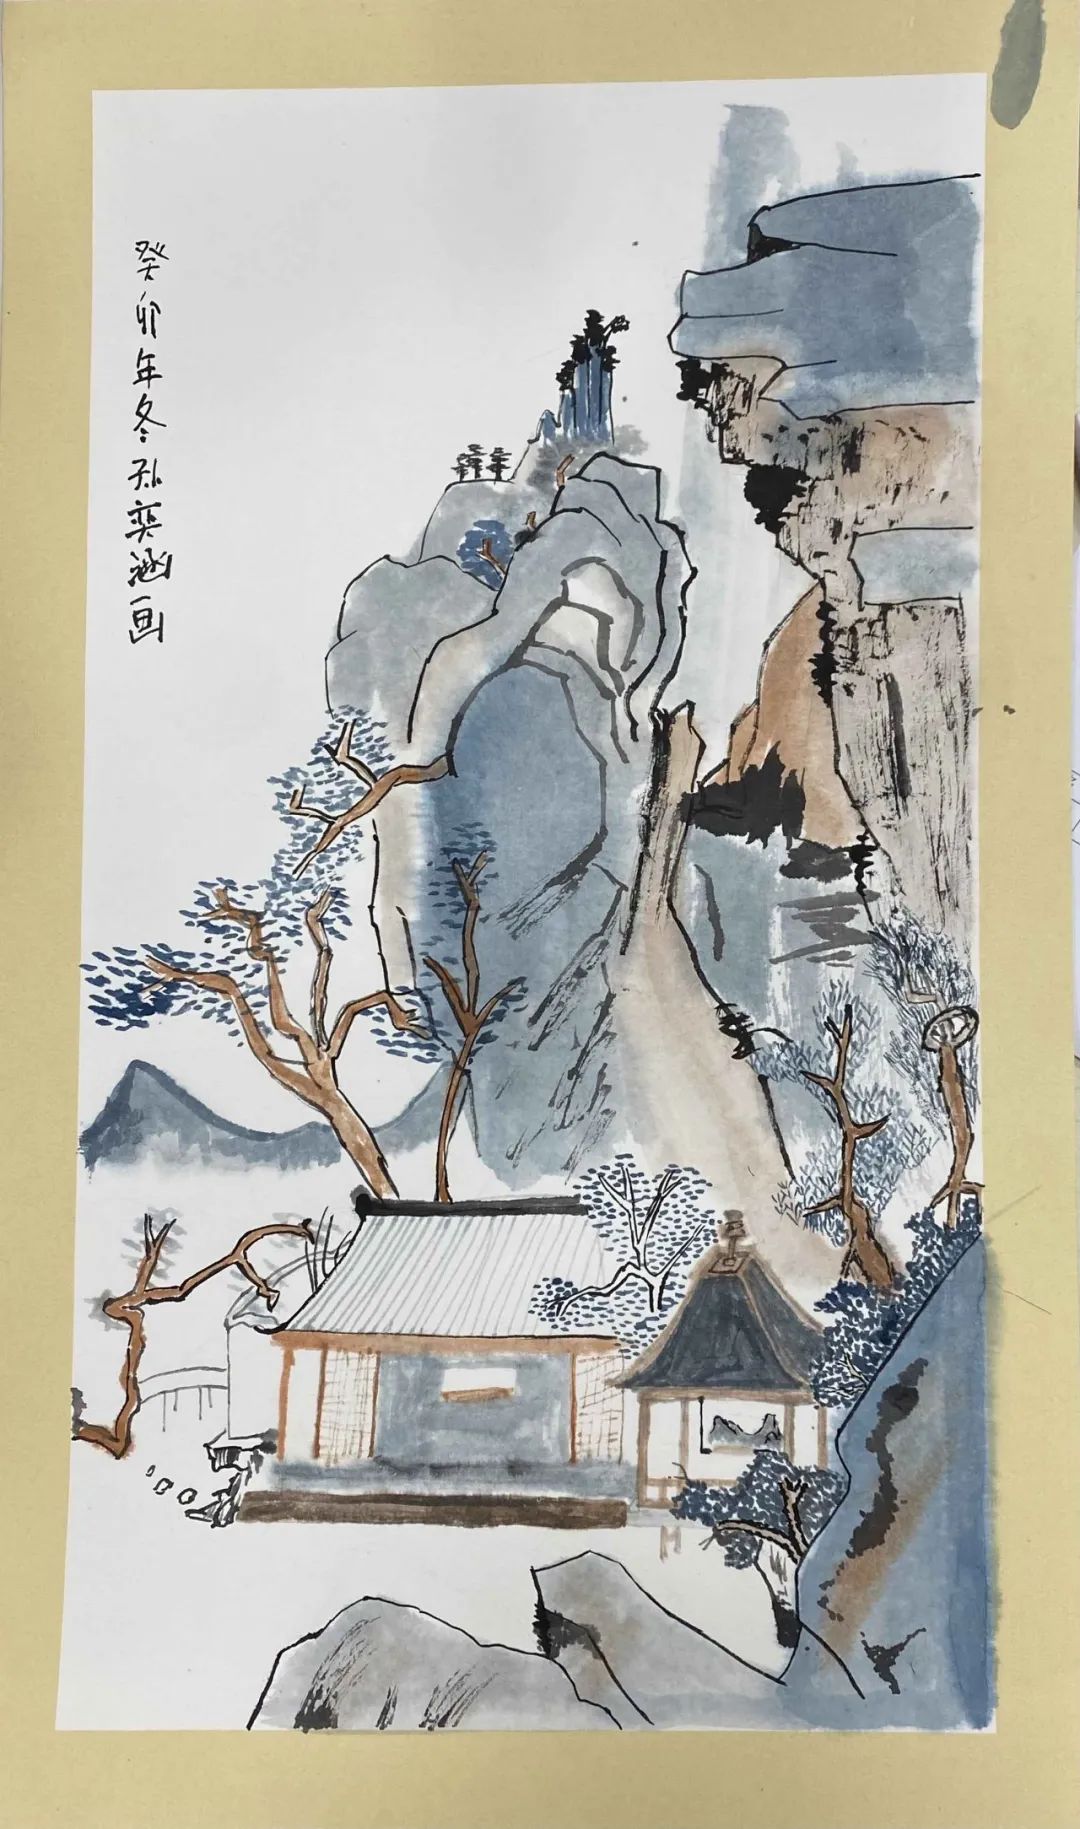 癸卯年冬孙奕涵画